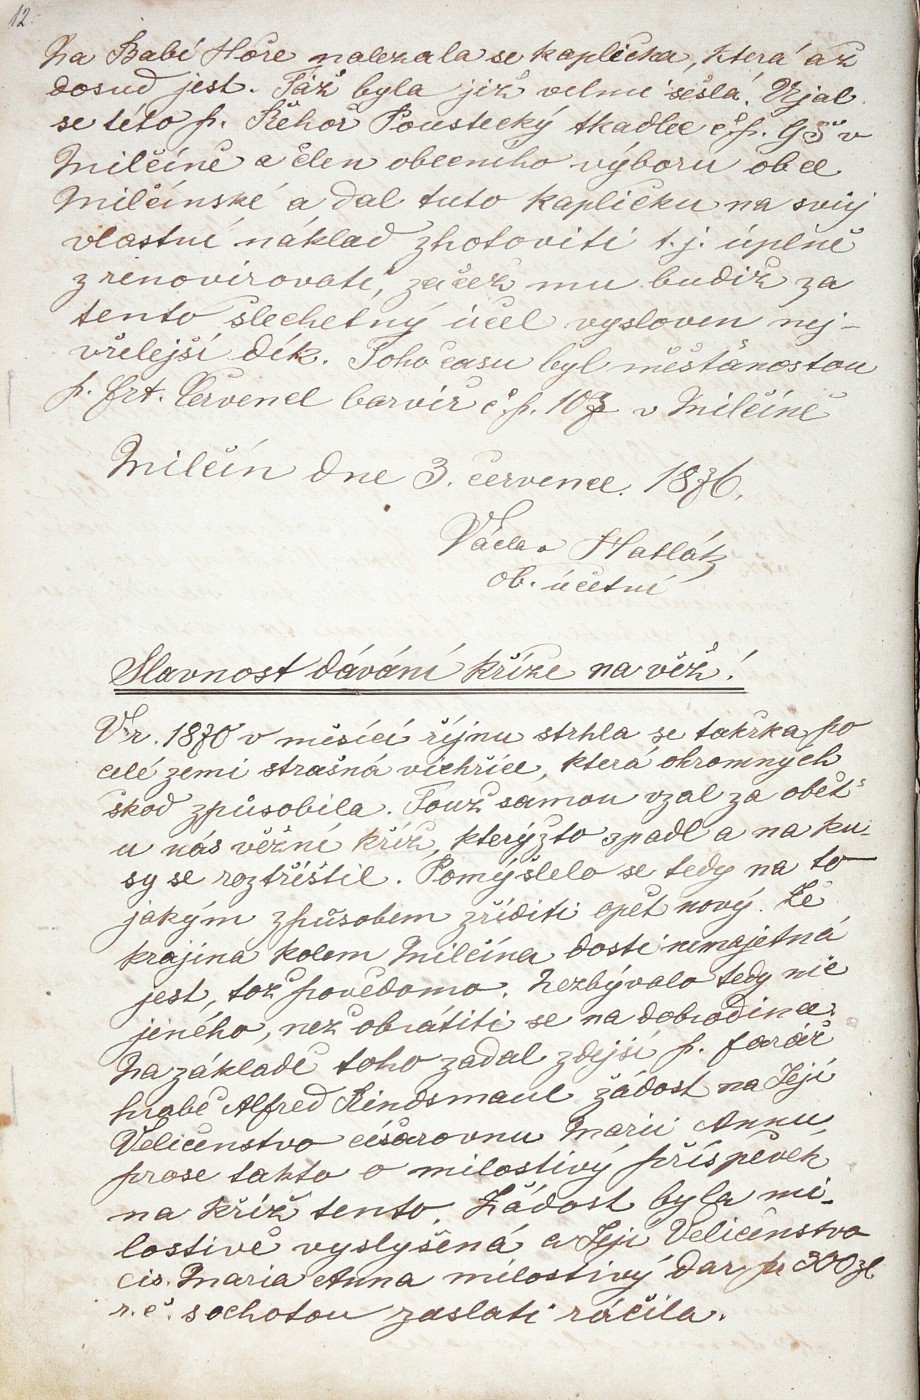 12.
Na Babí Hoře nalezala se kaplička, která až
dosud jest. Táž byla již velmi sešlá. Ujal
se této p. Řehoř Poustecký tkadlec č. p. 93 v
Milčíně a člen obecního výboru obce
Milčínské a dal tuto kapličku na svůj
vlastní náklad zhotoviti t. j. úplně
zrenovírovati, začež mu budiž za
tento šlechetný účel vysloven nej-
vřelejší dík. Toho času byl měšťanostou
p. Frt. Červenel barvíř č. p. 107 v Milčíně
Milčín dne 3. července. 1876.
Václav Hatlák
ob. účetní
Slavnost dávání kříže na věž!
V r. 1870 v měsíci říjnu strhla se takřka po
celé zemi strašná vichřice, která ohromných
škod způsobila. Touž samou vzal za oběť
u nás věžní kříž, kterýžto spadl a na ku-
sy se roztříštil. Pomýšlelo se tedy na to
jakým způsobem zříditi opět nový. Že
krajina kolem Milčína dosti nemajetná
jest, tož povědomo. Nezbývalo tedy nic
jiného, než obrátiti se na dobrodince.
Na základě toho zadal zdejší p. farář
hrabě Alfred Kindsmaul žádost na Její
Veličenstvo císařovnu Marii Annu
prose takto o milostivý příspěvek
na kříž tento. Žádost byla mi-
lostivě vyslyšená a Její Veličenstvo
cís. Maria Anna milostivý dar pr 300 zl
r. č. sochotou zaslati ráčila.